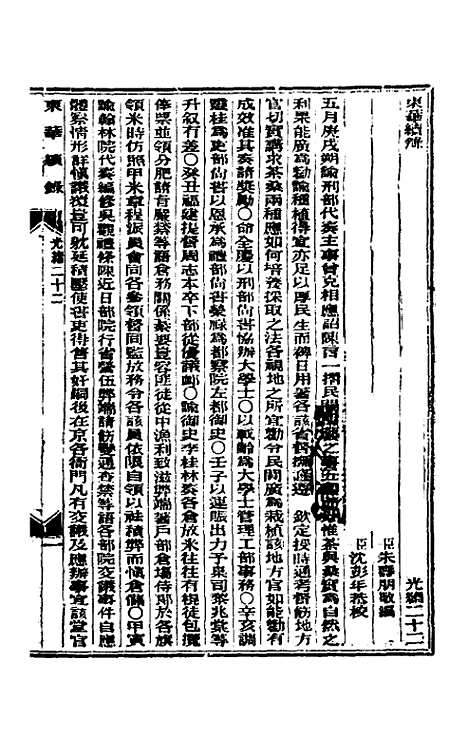 東華續錄
光緒二十二
臣朱壽朋敬編
臣沈彭年恭校
五月庚戌朔諭刑部代奏主事曾兆相應詔陳言一摺民間 之 惟茶與桑實爲自然之
利果能廣爲勸諭種植得宜亦足以厚民生而裨日用著各該省督撫遵 欽定授時通考飭地方
官切實講求茶桑兩種應如何培養採取之法各視地之所宜勸令民間廣爲栽植該地方官如能勸有
成效准其奏請獎勵○命全慶以刑部尚書協辦大學士○以載齡爲大學士管理工部事務○辛亥調
靈桂爲吏部尚書以恩承爲禮部尚書榮祿爲都察院左都御史○壬子以運賑出力予 司黎兆棠等
升敘有差○癸丑福建提督周志本卒下部從優議卹○諭御史李桂林奏各倉放米往往有楦徒包攬
俸票並領分肥請旨嚴禁等語倉務關係綦要豈容匪徒從中漁利致滋弊端著戶部倉場侍郎於各旗
領米時仿照甲米章程派員會同各參領督同監放務令各該員依限自領以祛積弊而慎倉儲○甲寅
諭翰林院代奏編修吳觀禮條陳近日部院行省 弊端請飭變通查禁等語各部院交議事件自應
體察情形詳慎議覆豈可 延積壓使書吏得售其奸嗣後在京各衙門凡有交議及應辦事宜該堂官
東華續錄
光緒二十二
一